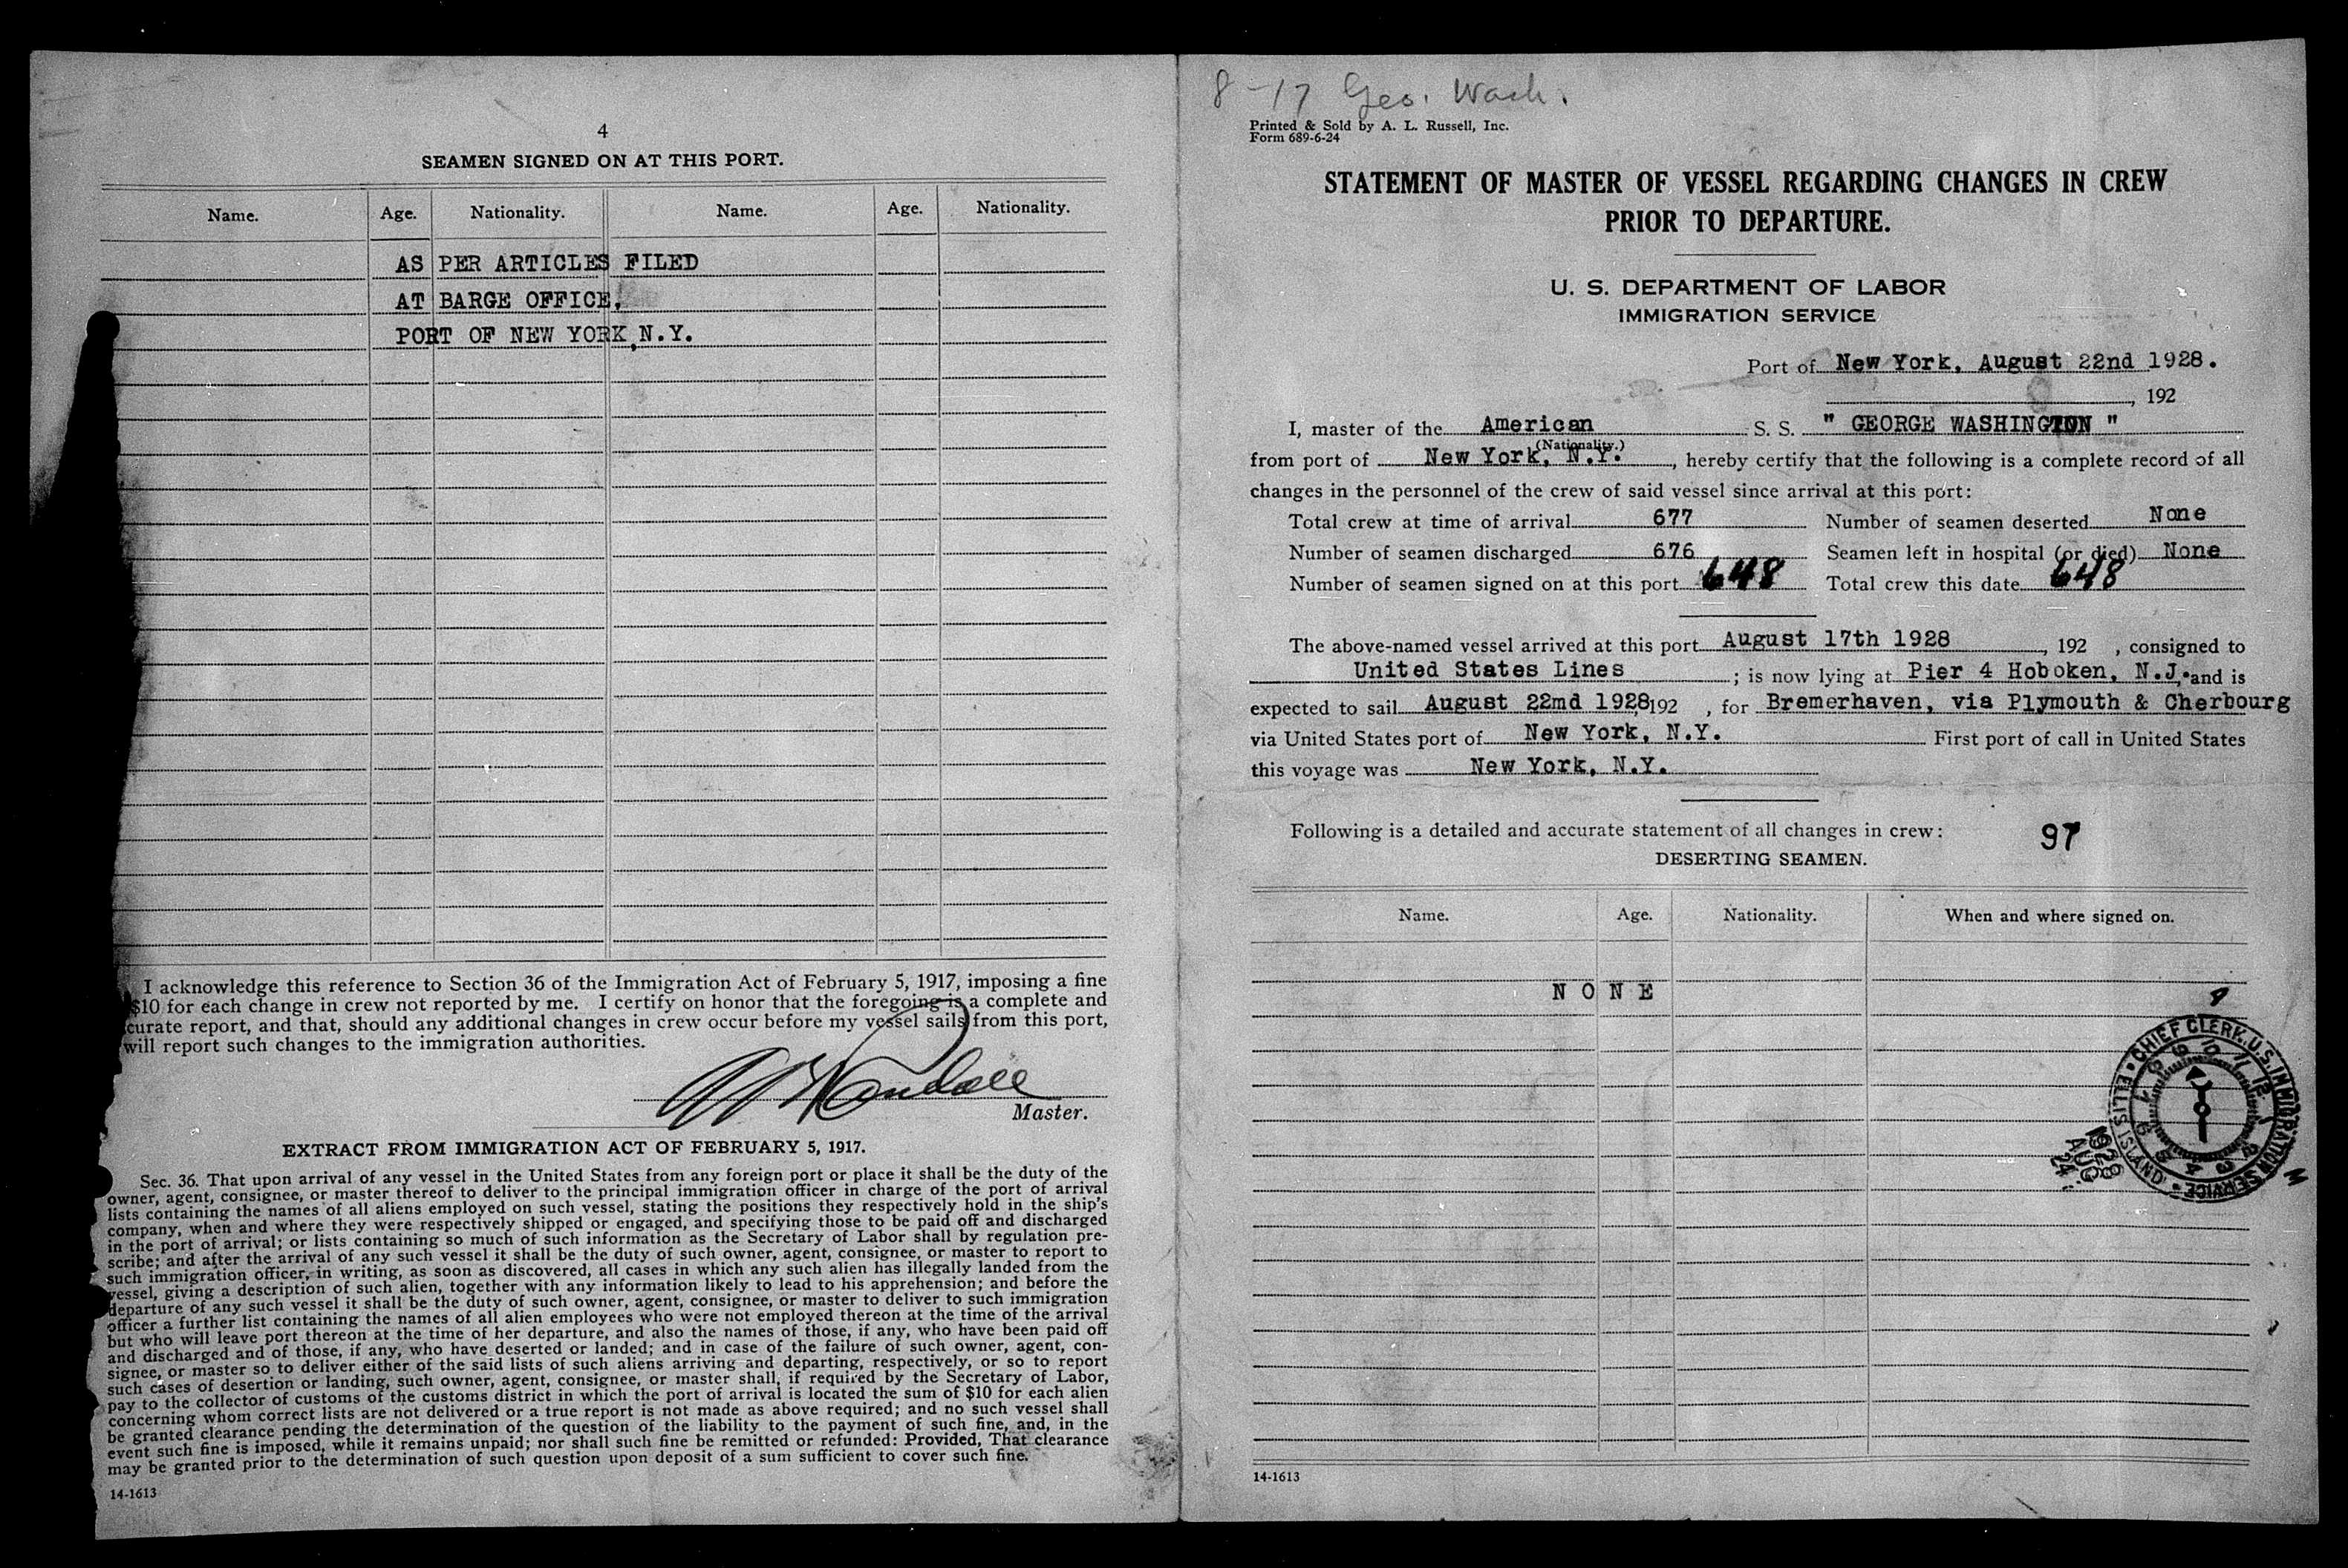 4
SEAMEN SIGNED ON AT THIS PORT.
Name. Age. Nationality. Name. Age. Nationality.
AS PER ARTICLES FILED
AT BARGE OFFICE,
PORT OF NEW YORK,N.Y.
I acknowledge this reference to Section 36 of the Immigration Act of February 5, 1917, imposing a fine
$10 for each change in crew not reported by me. I certify on honor that the foregoing is a complete and
curate report, and that, should any additional changes in crew occur before my vessel sails from this port,
will report such changes to the immigration authorities.
Master.
EXTRACT FROM IMMIGRATION ACT OF FEBRUARY 5, 1917.
Sec. 36. That upon arrival of any vessel in the United States from any foreign port or place it shall be the duty of the
owner, agent, consignee, or master thereof to deliver to the principal immigration officer in charge of the port of arrival
lists containing the names of all aliens employed on such vessel, stating the positions they respectively hold in the ship's
company, when and where they were respectively shipped or engaged, and specifying those to be paid off and discharged
in the port of arrival; or lists containing so much of such information as the Secretary of Labor shall by regulation pre-
scribe; and after the arrival of any such vessel it shall be the duty of such owner, agent, consignee, or master to report to
such immigration officer, in writing, as soon as discovered, all cases in which any such alien has illegally landed from the
vessel, giving a description of such alien, together with any information likely to lead to his apprehension; and before the
departure of any such vessel it shall be the duty of such owner, agent, consignee, or master to deliver to such immigration
officer a further list containing the names of all alien employees who were not employed thereon at the time of the arrival
but who will leave port thereon at the time of her departure, and also the names of those, if any, who have been paid off
and discharged and of those, if any, who have deserted or landed; and in case of the failure of such owner, agent, con-
signee, or master so to deliver either of the said lists of such aliens arriving and departing, respectively, or so to report
such cases of desertion or landing, such owner, agent, consignee, or master shall, if required by the Secretary of Labor,
pay to the collector of customs of the customs district in which the port of arrival is located the sum of $10 for each alien
concerning whom correct lists are not delivered or a true report is not made as above required; and no such vessel shall
be granted clearance pending the determination of the question of the liability to the payment of such fine, and, in the
event such fine is imposed, while it remains unpaid; nor shall such fine be remitted or refunded: Provided, That clearance
may be granted prior to the determination of such question upon deposit of a sum sufficient to cover such fine.
14-1613
8-17 Geo. Wash.
Printed & Sold by A. L. Russell, Inc.
Form 689-6-24
STATEMENT OF MASTER OF VESSEL REGARDING CHANGES IN CREW
PRIOR TO DEPARTURE.
U. S. DEPARTMENT OF LABOR
IMMIGRATION SERVICE
Port of New York, August 22nd 1928.
, 192
I, master of the American S. S. " GEORGE WASHINGTON "
(Nationality.)
from port of New York, N.Y. , hereby certify that the following is a complete record of all
changes in the personnel of the crew of said vessel since arrival at this port:
Total crew at time of arrival 677 Number of seamen deserted None
Number of seamen discharged 676 Seamen left in hospital (or died) None
Number of seamen signed on at this port 648 Total crew this date 648
The above-named vessel arrived at this port August 17th 1928 , 192 , consigned to
United States Lines ; is now lying at Pier 4 Hoboken, N.J. , and is
expected to sail August 22md 1928 , 192 , for Bremerhaven, via Plymouth & Cherbourg
via United States port of New York, N.Y. First port of call in United States
this voyage was New York, N.Y.
Following is a detailed and accurate statement of all changes in crew: 97
DESERTING SEAMEN.
Name. Age. Nationality. When and where signed on.
N O N E
CHIEF CLERK. U.S. IMMIGRATION SERVICE • ELLIS ISLAND •
7 8 9 10 11 12 1 2 3 4 5 6
A M
1928 AUG. 24
14-1613